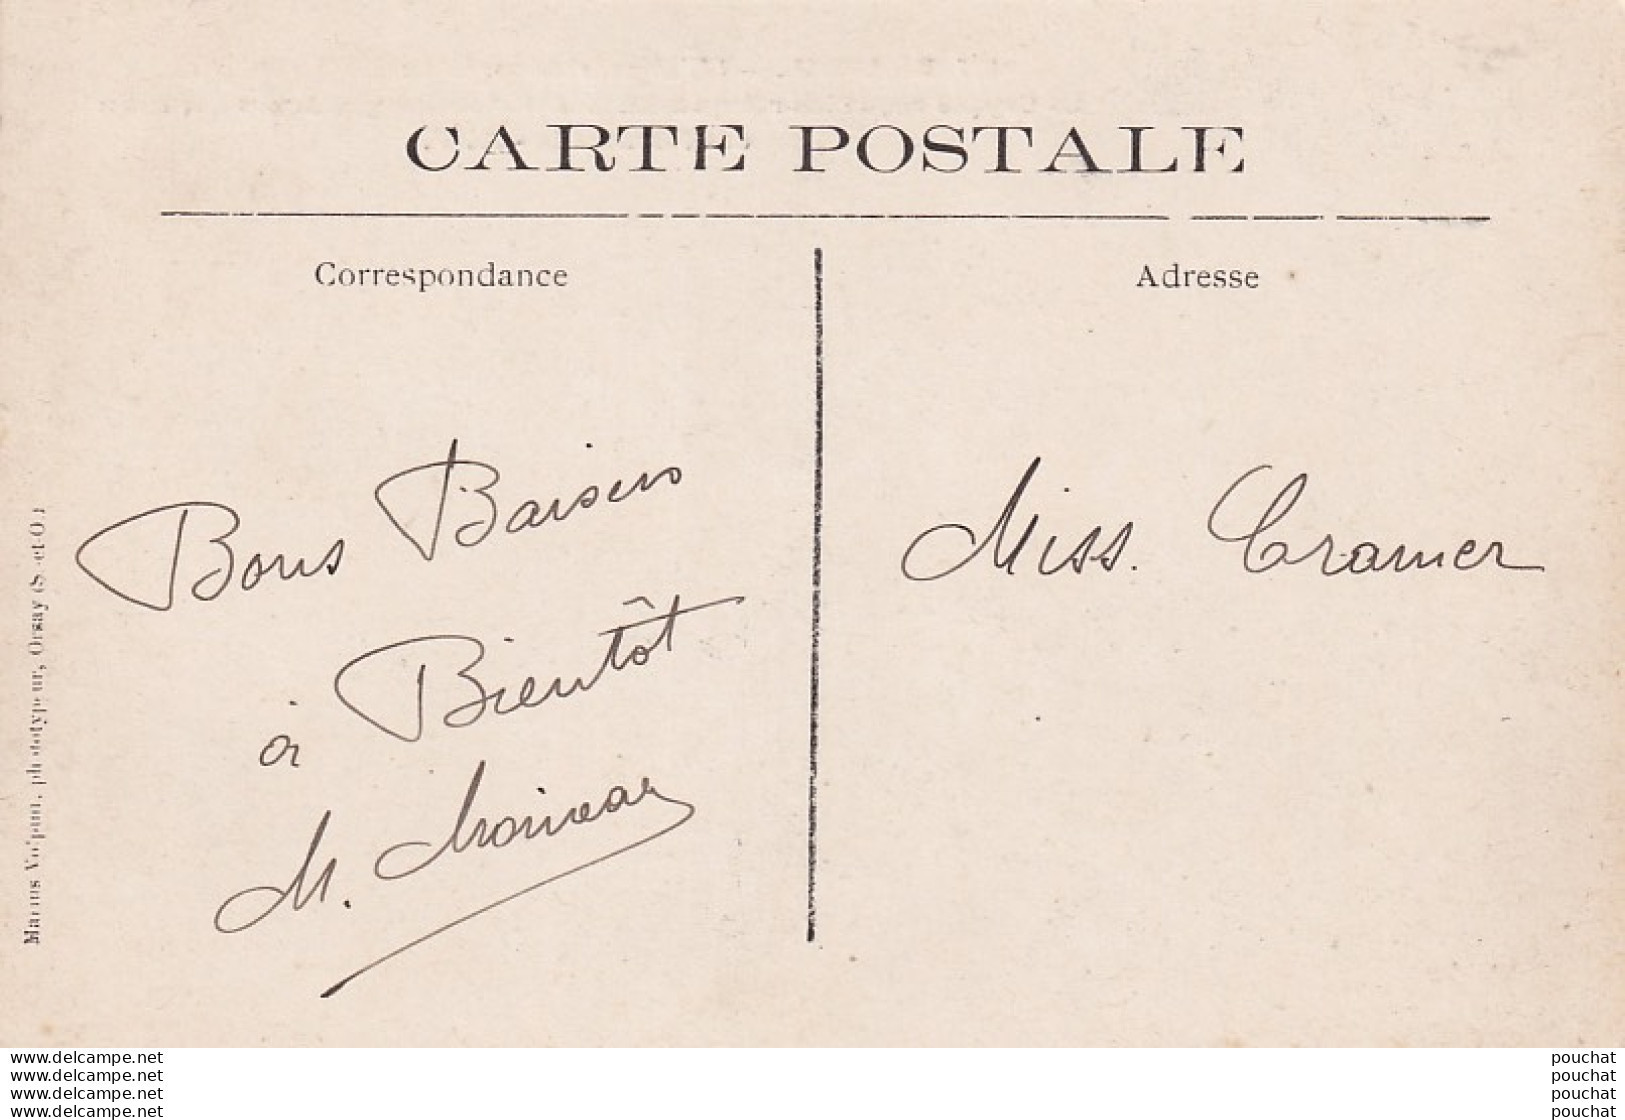 CARTE POSTALE
Correspondance
Adresse
Bons Baisers
à Bientôt
M.
Miss. Cramer
Marius phototypeur, Orsay (S.-et-O.)
www.delcampe.net
www.delcampe.net
www.delcampe.net
www.delcampe.net
pouchat
pouchat
pouchat
pouchat